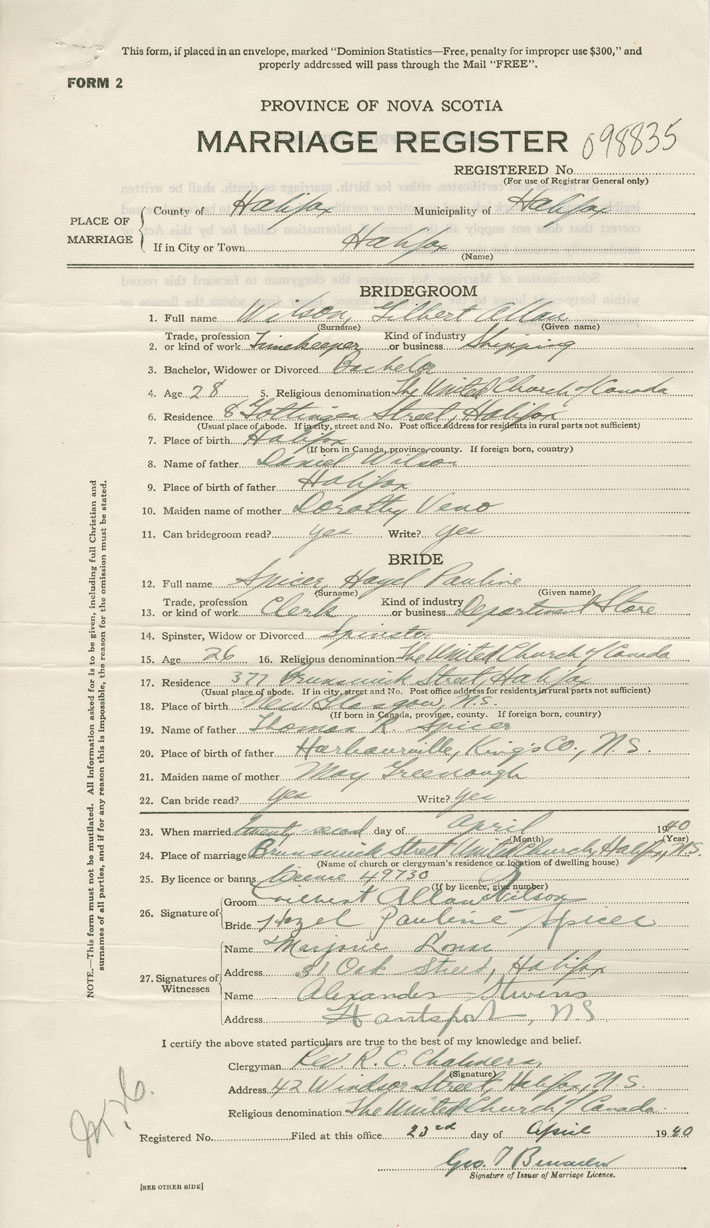 This form, if placed in an envelope, marked "Dominion Statistics—Free, penalty for improper use $300," and
properly addressed will pass through the Mail "FREE".
FORM 2
PROVINCE OF NOVA SCOTIA
MARRIAGE REGISTER 098835
REGISTERED No.
(For use of Registrar General only)
PLACE OF MARRIAGE
County of Halifax Municipality of Halifax
If in City or Town Halifax
(Name)
BRIDEGROOM
1. Full name Wilson, Gilbert Allan
(Surname) (Given name)
2. Trade, profession or kind of work Timekeeper Kind of industry or business Shipping
3. Bachelor, Widower or Divorced Bachelor
4. Age 28 5. Religious denomination The United Church of Canada
6. Residence 8 Gottingen Street, Halifax
(Usual place of abode. If in city, street and No. Post office address for residents in rural parts not sufficient)
7. Place of birth Halifax
(If born in Canada, province, county. If foreign born, country)
8. Name of father Daniel Wilson
9. Place of birth of father Halifax
10. Maiden name of mother Dorothy Veno
11. Can bridegroom read? yes Write? yes
BRIDE
12. Full name Spicer, Hazel Pauline
(Surname) (Given name)
13. Trade, profession or kind of work Clerk Kind of industry or business Department Store
14. Spinster, Widow or Divorced Spinster
15. Age 26 16. Religious denomination The United Church of Canada
17. Residence 377 Brunswick Street, Halifax
(Usual place of abode. If in city, street and No. Post office address for residents in rural parts not sufficient)
18. Place of birth New Glasgow, N.S.
(If born in Canada, province, county. If foreign born, country)
19. Name of father Thomas R. Spicer
20. Place of birth of father Harbourville, King's Co., N.S.
21. Maiden name of mother May Greenough
22. Can bride read? yes Write? yes
23. When married twenty second day of April 1940
(Month) (Year)
24. Place of marriage Brunswick Street United Church, Halifax, N.S.
(Name of church or clergyman's residence or location of dwelling house)
25. By licence or banns License 49730
(If by licence, give number)
26. Signature of
Groom Gilbert Allan Wilson
Bride Hazel Pauline Spicer
27. Signatures of Witnesses
Name Marjorie
Address 31 Oak Street, Halifax
Name Alexander
Address Hantsport, N.S.
I certify the above stated particulars are true to the best of my knowledge and belief.
Clergyman Rev. R. C. Chalmers
(Signature)
Address 42 Windsor Street, Halifax, N.S.
Religious denomination The United Church of Canada.
Registered No. Filed at this office 23rd day of April 1940
Geo.
Signature of Issuer of Marriage Licence.
[SEE OTHER SIDE]
NOTE.—This form must not be mutilated. All information asked for is to be given, including full Christian and
surnames of all parties, and if for any reason this is impossible, the reason for the omission must be stated.